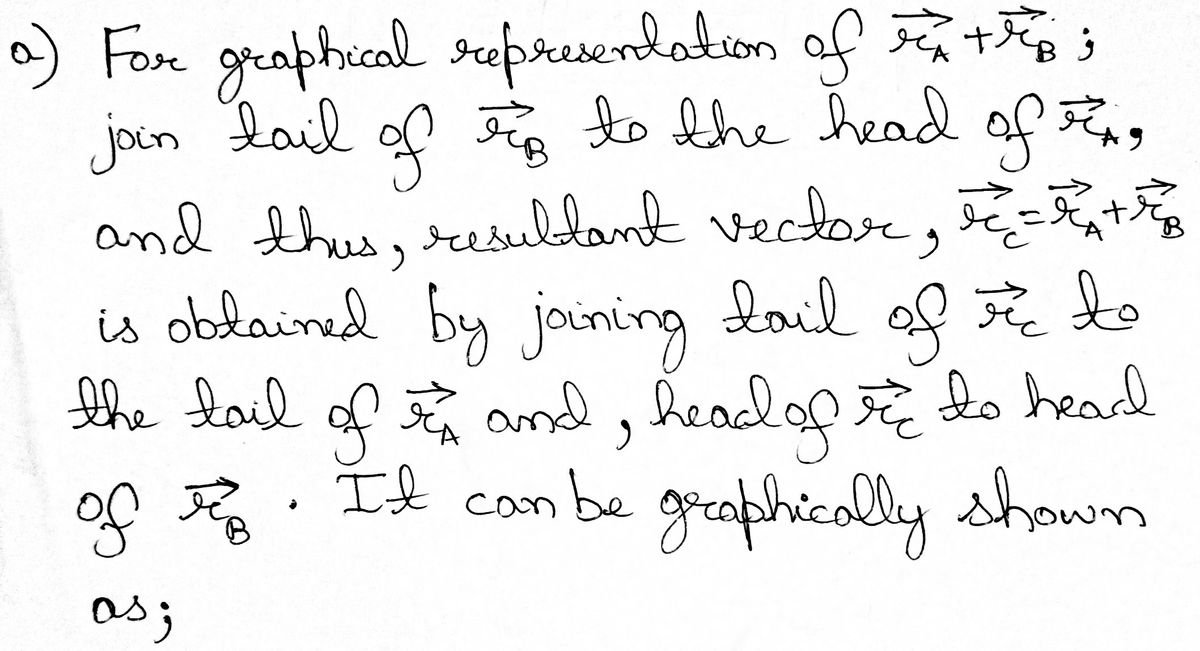 a) For graphical representation of $\vec{r}_A + \vec{r}_B$ ;
join tail of $\vec{r}_B$ to the head of $\vec{r}_A$,
and thus, resultant vector, $\vec{r}_c = \vec{r}_A + \vec{r}_B$
is obtained by joining tail of $\vec{r}_c$ to
the tail of $\vec{r}_A$ and, head of $\vec{r}_c$ to head
of $\vec{r}_B$. It can be graphically shown
as;